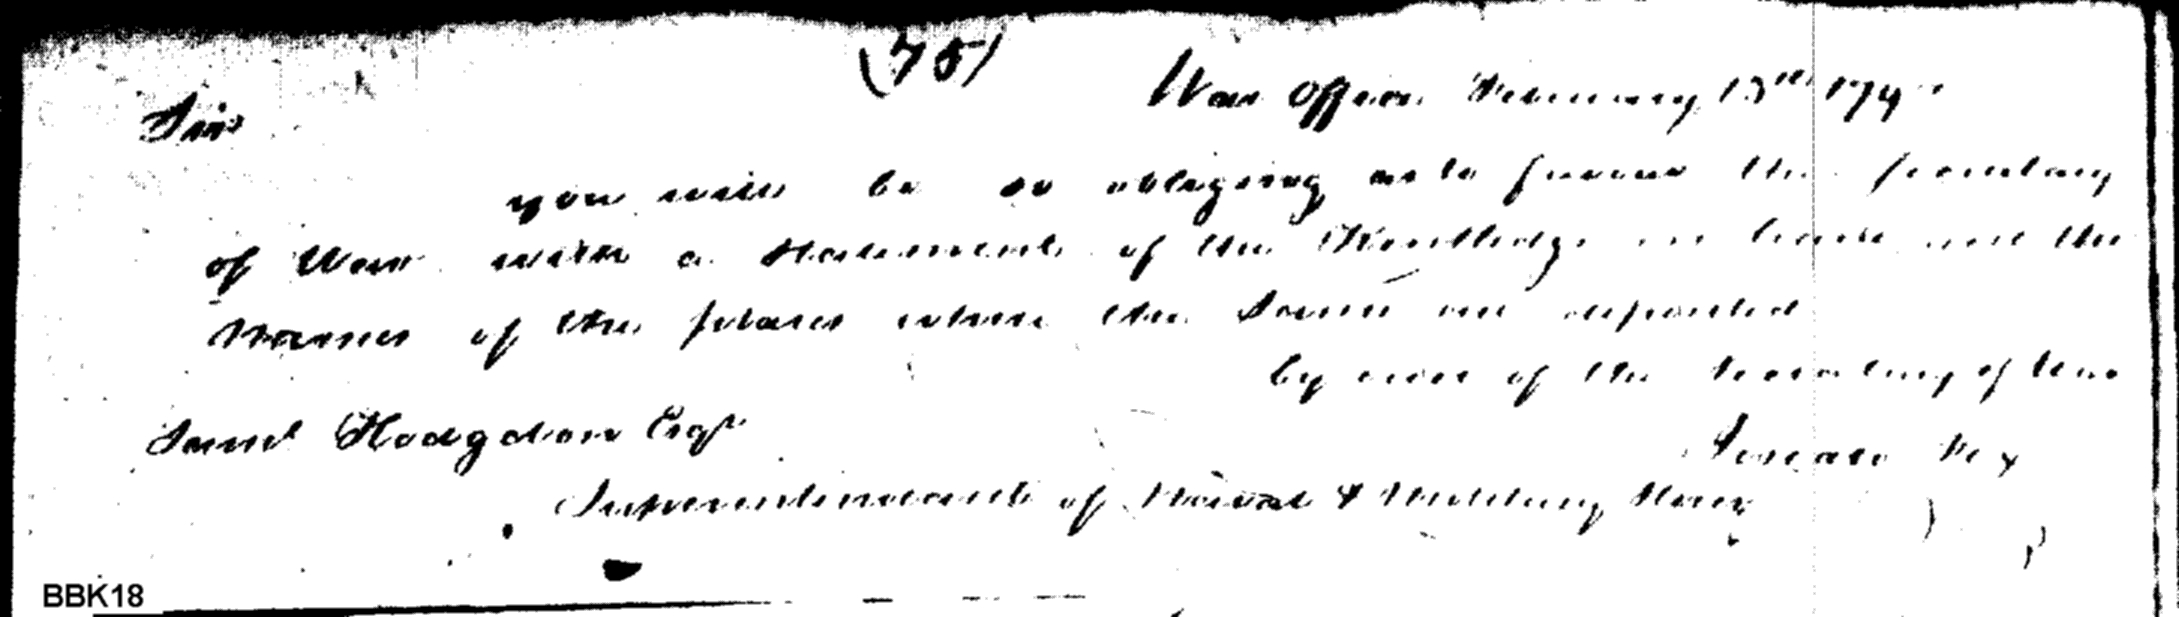 (75)
War Office February 13th 179
Sir
you will be so obliging as to favour the Secretary
of War with a Statement of the Kentledge on hand and the
Names of the places where the Same are deposited
by order of the Secretary of War
Saml Hodgdon Esqr
Superintendant of Naval & Military Stores
BBK18